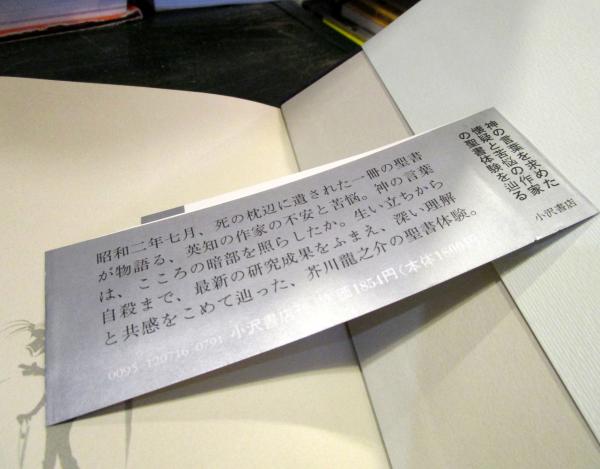 神の言葉を求めた
懐疑と苦悩の作家
の聖書体験を辿る
小沢書店
昭和二年七月、死の枕辺に遺された一冊の聖書
が物語る、英知の作家の不安と苦悩。神の言葉
は、こころの暗部を照らしたか。生い立ちから
自殺まで、最新の研究成果をふまえ、深い理解
と共感をこめて辿った、芥川龍之介の聖書体験。
小沢書店 定価1854円(本体1800円)